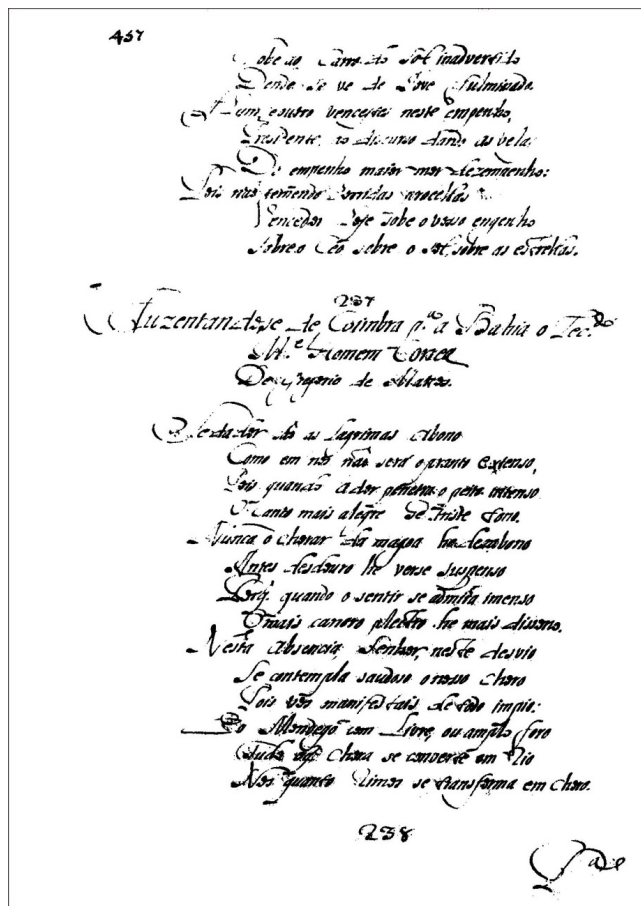 457
Sobe ao Carro do Sol inadvertido
Donde se ve de Jove fulminado.
A hum, e outro vencestes neste empenho,
Presidente, ao discurso dando as vela
De empenho maior mor dezempenho:
Pois não temendo horridas procellas
Vencedor hoje sobe o vosso engenho
Sobre o Ceo, sobre o Sol, sobre as estrellas.
237
Auzentandose de Coimbra p.ª a Bahia o Lec.do
M.el Homem Correa
De Gregorio de Mattos.
Se da dor são as lagrimas abono
Como em nós não será o pranto extenso,
Pois quando a dor penetra o peito intenso
O canto mais alegre he triste tono.
Nunca o chorar da magoa he dezabono
Antes desdouro he verse suspenso
Porq̃ quando o sentir se admira imenso
O mais canoro plectro he mais dissono.
Nesta absencia, Senhor, neste desvio
Se contempla saudoso o nosso choro
Pois vos manifestais de todo impio:
Do Mondego com livre, ou amplo foro
Tudo o q̃ chora se converte em Rio
Nós quanto Rimos se transforma em choro.
238